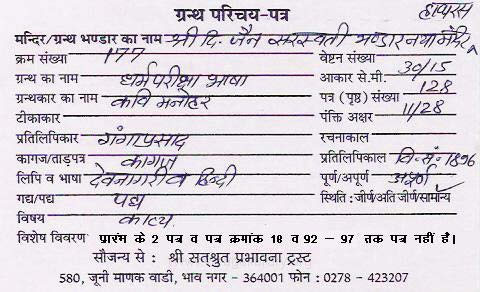 ग्रन्थ परिचय-पत्र
हाथरस
मन्दिर/ग्रन्थ भण्डार का नाम श्री दि. जैन सरस्वती भण्डार नया मंदिर
क्रम संख्या 177 वेष्टन संख्या
ग्रन्थ का नाम धर्मपरीक्षा भाषा आकार से.मी. 30/15
ग्रन्थकार का नाम कवि मनोहर पत्र (पृष्ठ) संख्या 128
टीकाकार पंक्ति अक्षर 11/28
प्रतिलिपिकार गंगाप्रसाद रचनाकाल
कागज/ताड़पत्र कागज प्रतिलिपिकाल वि.सं. 1896
लिपि व भाषा देवनागरी व हिन्दी पूर्ण/अपूर्ण अपूर्ण
गद्य/पद्य पद्य स्थिति : जीर्ण/अति जीर्ण/सामान्य
विषय काव्य
विशेष विवरण प्रारंभ के 2 पत्र व पत्र क्रमांक 18 व 92 – 97 तक पत्र नहीं है।
सौजन्य से : श्री सत्श्रुत प्रभावना ट्रस्ट
580, जूनी माणक वाडी, भाव नगर - 364001 फोन : 0278 - 423207